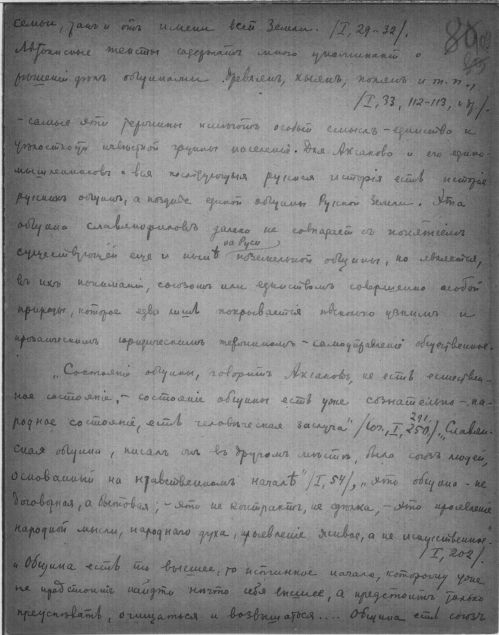 семьи, такъ и отъ имени всей Земли. /I, 29-32/.
Летописные тексты содержатъ много упоминаній о
решеніи дѣлъ общинами древлянъ, кіянъ, полянъ и т. п.,
/I, 33, 112-113, /.
- самые эти термины имѣютъ особый смыслъ - единства и
извѣстной группы населенія. Для Аксакова и его едино-
мышленниковъ вся послѣдующая русская исторія есть исторія
русскихъ общинъ, а позднѣе единой общины Русской Земли. Эта
община славянофиловъ далеко не совпадаетъ съ понятіемъ
на Руси
существующей еще и нынѣ поземельной общины, но является,
въ ихъ пониманіи, союзомъ или единствомъ совершенно особой
природы, которое едва лишь покрывается нѣсколько узкимъ и
прозаическимъ юридическимъ терминомъ - самоуправленіе общественное.
„Состояніе общины, говоритъ Аксаковъ, не есть естествен-
ное состояніе, - состояніе общины есть уже сознательно-на-
291.
родное состояніе, есть человѣческая заслуга" /Соч., I, 250./ „Славян-
ская община, писалъ онъ въ другомъ мѣстѣ, была союзъ людей,
основанный на нравственномъ началѣ" /I, 54/, „это община - не
договорная, а бытовая; - это не контрактъ, не сдѣлка, - это проявленіе
народной мысли, народнаго духа, проявленіе живое, а не искусственное."
/I, 202/.
„Община есть то высшее, то истинное начало, которому уже
не предстоитъ найти нѣчто себя высшее, а предстоитъ только
преуспѣвать, очищаться и возвышаться.... Община есть союзъ